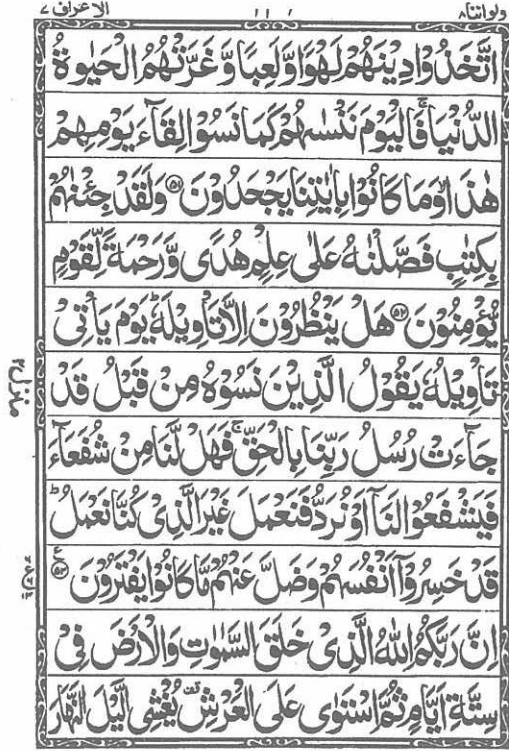 ولواننا ٨
الاعراف ٧
اتَّخَذُوْا دِيْنَهُمْ لَهْوًا وَّلَعِبًا وَّغَرَّتْهُمُ الْحَيٰوةُ
الدُّنْيَا ۚ فَالْيَوْمَ نَنْسٰىهُمْ كَمَا نَسُوْا لِقَآءَ يَوْمِهِمْ
هٰذَا ۙ وَمَا كَانُوْا بِاٰيٰتِنَا يَجْحَدُوْنَ ﴿۵۱﴾ وَلَقَدْ جِئْنٰهُمْ
بِكِتٰبٍ فَصَّلْنٰهُ عَلٰى عِلْمٍ هُدًى وَّرَحْمَةً لِّقَوْمٍ
يُّؤْمِنُوْنَ ﴿۵۲﴾ هَلْ يَنْظُرُوْنَ اِلَّا تَاْوِيْلَهٗ ؕ يَوْمَ يَاْتِىْ
تَاْوِيْلُهٗ يَقُوْلُ الَّذِيْنَ نَسُوْهُ مِنْ قَبْلُ قَدْ
جَآءَتْ رُسُلُ رَبِّنَا بِالْحَقِّ ۚ فَهَلْ لَّنَا مِنْ شُفَعَآءَ
فَيَشْفَعُوْا لَنَاۤ اَوْ نُرَدُّ فَنَعْمَلَ غَيْرَ الَّذِىْ كُنَّا نَعْمَلُ ؕ
قَدْ خَسِرُوْۤا اَنْفُسَهُمْ وَضَلَّ عَنْهُمْ مَّا كَانُوْا يَفْتَرُوْنَ ﴿۵۳﴾ ع
اِنَّ رَبَّكُمُ اللّٰهُ الَّذِىْ خَلَقَ السَّمٰوٰتِ وَالْاَرْضَ فِىْ
سِتَّةِ اَيَّامٍ ثُمَّ اسْتَوٰى عَلَى الْعَرْشِ يُغْشِى الَّيْلَ النَّهَارَ
منزل ٢